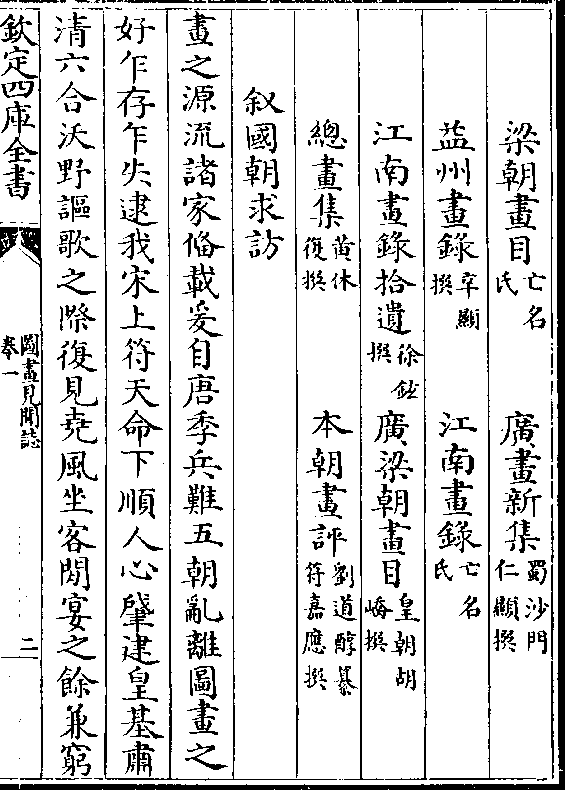 梁朝畫目亡名氏　廣畫新集蜀沙門仁顯撰
益州畫錄辛顯撰　江南畫錄亡名氏
江南畫錄拾遺徐鉉撰　廣梁朝畫目皇朝胡嶠撰
總畫集黄休復撰　本朝畫評劉道醇纂符嘉應撰
叙國朝求訪
畫之源流諸家備載爰自唐季兵難五朝亂離圖畫之
好乍存乍失逮我宋上符天命下順人心肇建皇基肅
清六合沃野謳歌之際復見堯風坐客閒宴之餘兼窮
欽定四庫全書
圖畫見聞誌
卷一
二